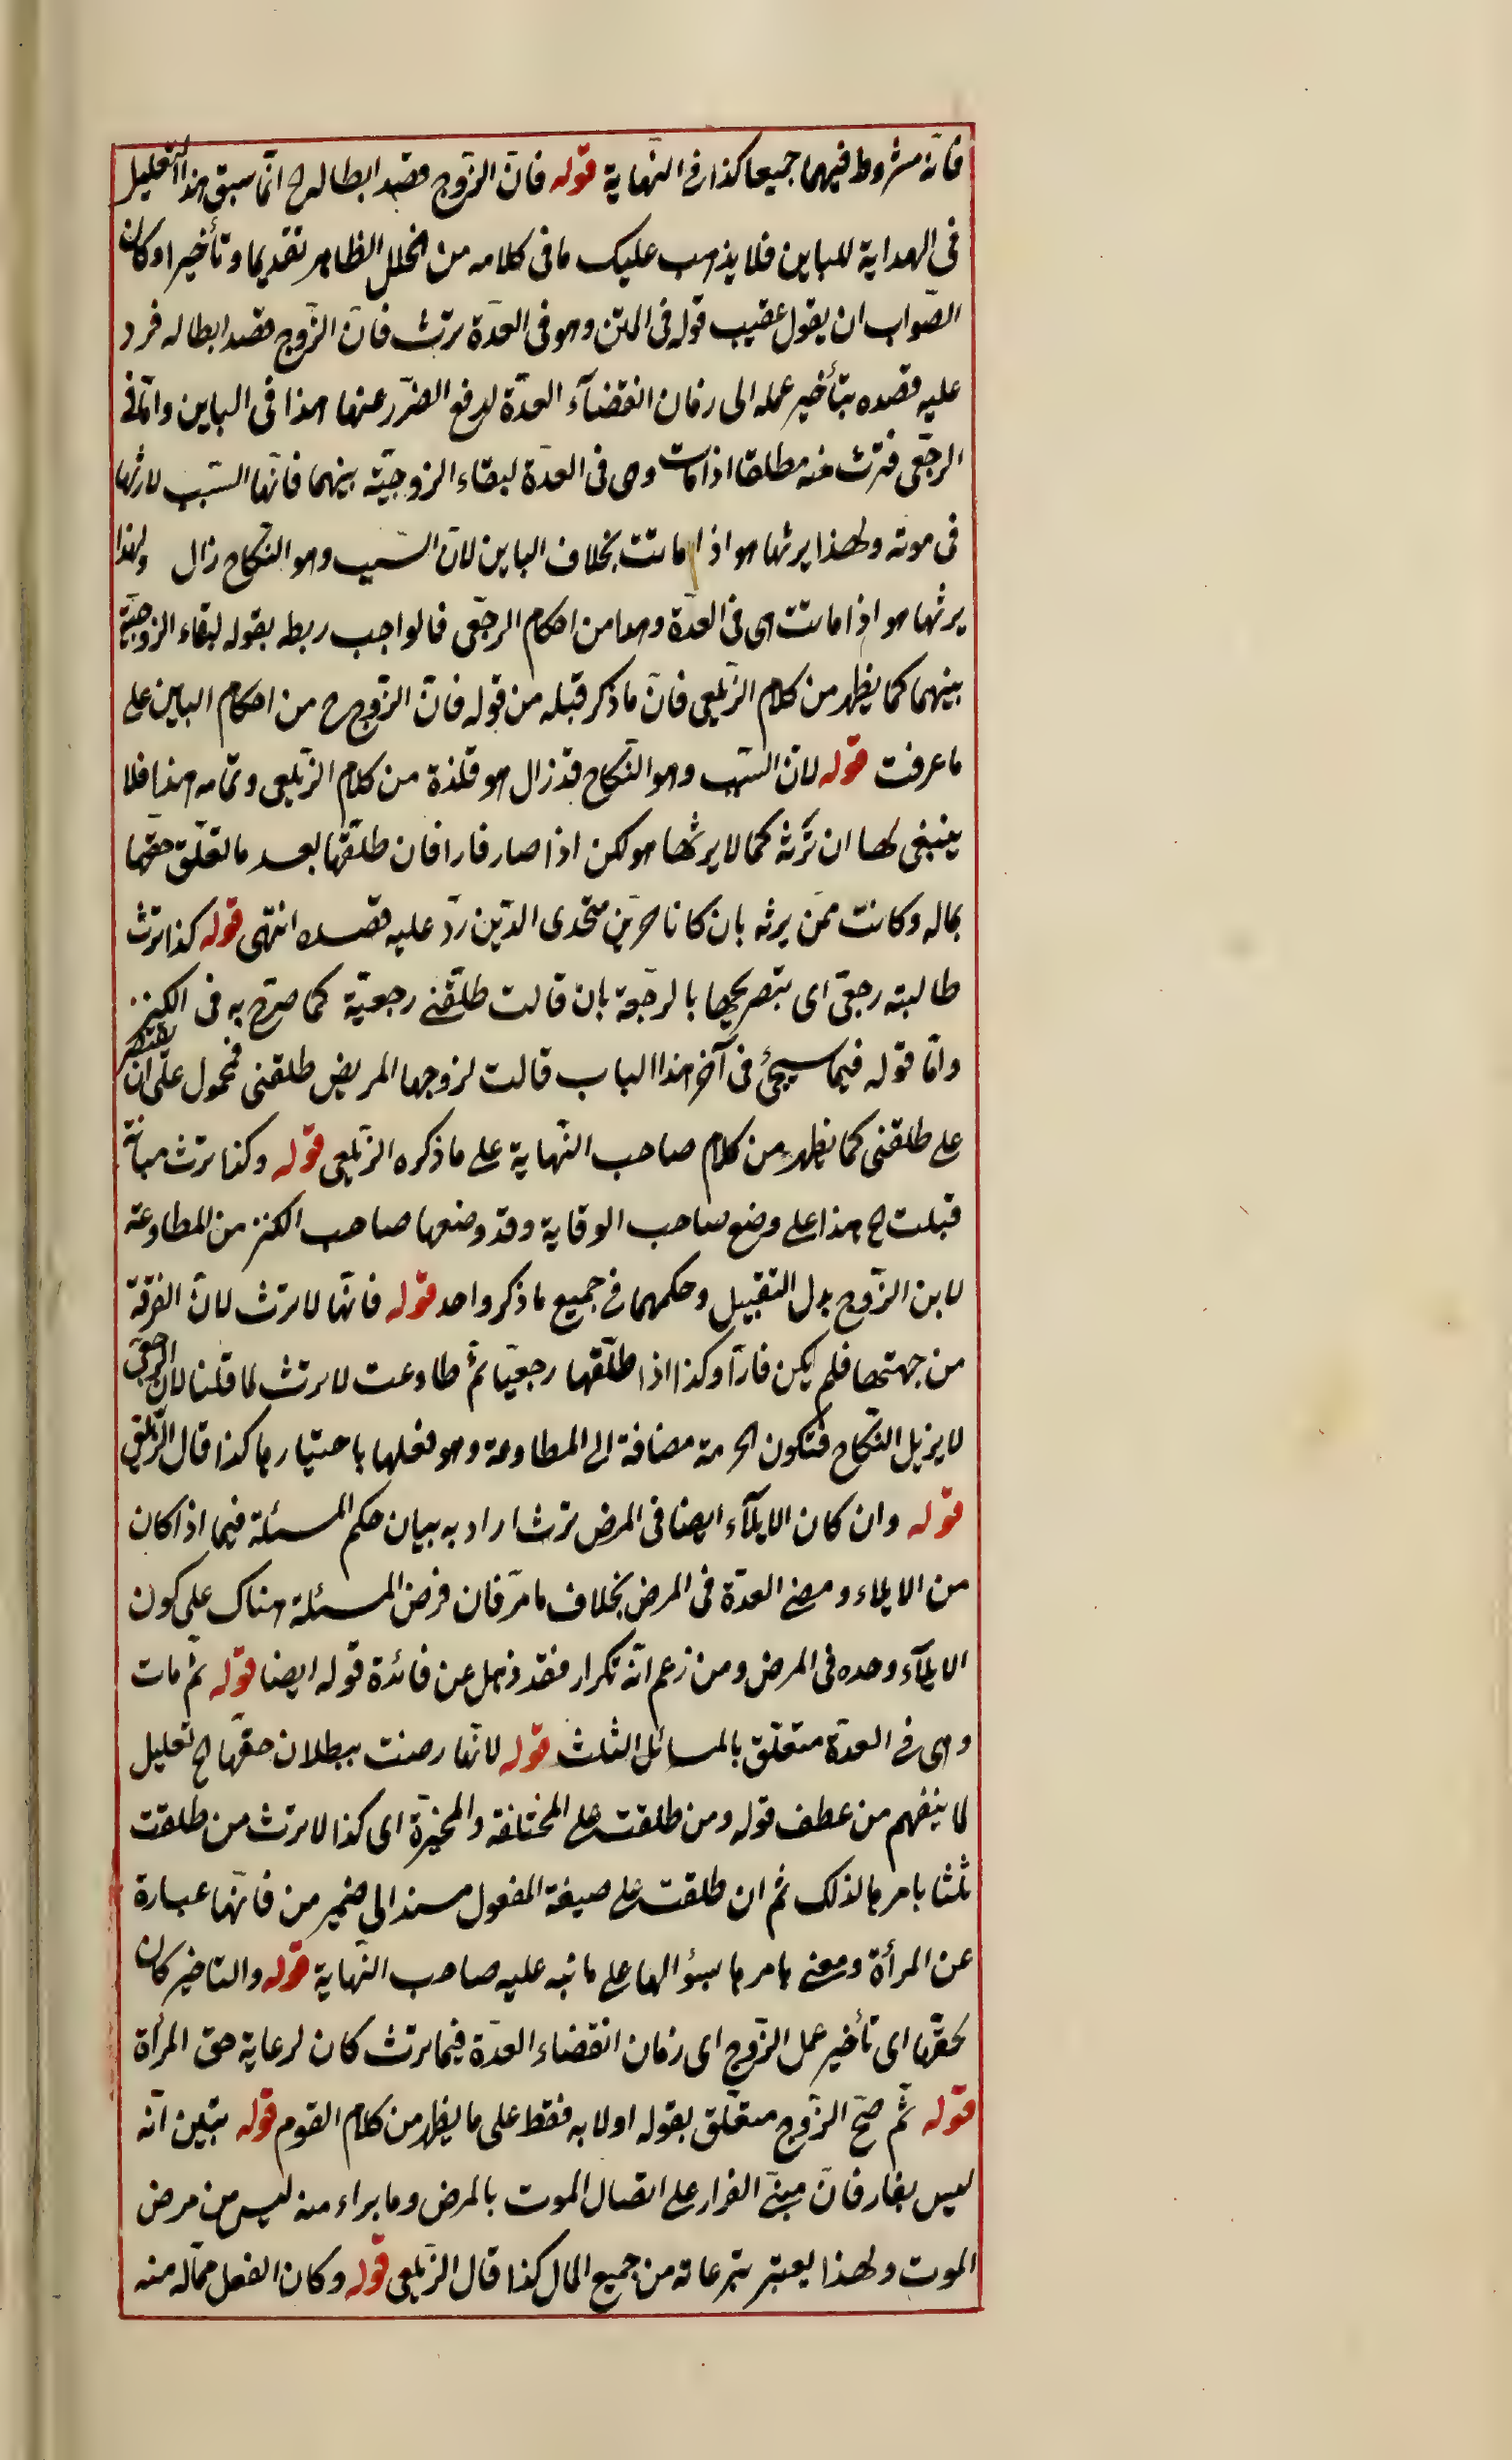 فانه مشروط فيهما جميعا كذا فى النهاية قوله فان الزوج قصد ابطاله ح انما سبق هذا التعليل
فى الهداية للباين فلا يذهب عليك ما فى كلامه من الخلل الظاهر تقديما وتأخيرا وكان
الصواب ان يقول عقيب قوله فى المتن وهو فى العدة ترث فان الزوج قصد ابطاله فرد
عليه قصده بتأخير عمله الى زمان انقضآء العدة لدفع الضرر عنها هذا فى الباين واما فى
الرجعى فترث منه مطلقا اذا مات وهى فى العدة لبقاء الزوجية بينهما فانها السبب لارثها
فى موته ولهذا يرثها هو اذا ماتت بخلاف الباين لان السبب وهو النكاح زال ولهذا
يرثها هو اذا ماتت هى فى العدة وهذا من احكام الرجعى فالواجب ربطه بقوله لبقاء الزوجية
بينهما كما يظهر من كلام الزيلعى فان ما ذكر قبله من قوله فان الزوج ح من احكام الباين على
ما عرفت قوله لان السبب وهو النكاح قد زال هو فلذة من كلام الزيلعى وتمامه هذا فلا
ينبغى لها ان ترثه كما لا يرثها هو لكن اذا صار فارا فان طلقها بعد ما تعلق حقها
بماله وكانت ممن يرثه بان كانا حرين متحدى الدين رد عليه قصده انتهى قوله كذا ترث
طالبته رجعى اى بتصريحها بالرجعة بان قالت طلقنى رجعية كما صرح به فى الكنز
واما قوله فيما سيجئ فى آخر هذا الباب قالت لزوجها المريض طلقنى فمحمول على ان تقتصر
على طلقنى كما يظهر من كلام صاحب النهاية على ما ذكره الزيلعى قوله وكذا ترث مبانة
قبلت ح هذا على وضع صاحب الوقاية وقد وضعها صاحب الكنز من المطاوعة
لابن الزوج بدل التقبيل وحكمهما فى جميع ما ذكر واحد قوله فانها لا ترث لان الفرقة
من جهتها فلم يكن فارا وكذا اذا طلقها رجعيا ثم طاوعت لا ترث لما قلنا لان الرجعى
لا يزيل النكاح فتكون الحرمة مضافة الى المطاوعة وهو فعلها باختيارها كذا قال الزيلعى
قوله وان كان الايلآء ايضا فى المرض ترث اراد به بيان حكم المسئلة فيما اذا كان
من الايلاء ومضى العدة فى المرض بخلاف ما مر فان فرض المسئلة هناك على كون
الايلآء وحده فى المرض ومن زعم انه تكرار فقد ذهل عن فائدة قوله ايضا قوله ثم مات
وهى فى العدة متعلق بالمسائل الثلث قوله لانها رضت ببطلان حقها ح تعليل
لما ينفهم من عطف قوله ومن طلقت على المختلعة والمخيرة اى كذا لا ترث من طلقت
ثلثا بامرها لذلك ثم ان طلقت على صيغة المفعول مسند الى ضمير من فانها عبارة
عن المرأة ومعنى بامرها بسؤالها على ما نبه عليه صاحب النهاية قوله والتاخير كان
لحقها اى تأخير عمل الزوج اى زمان انقضاء العدة فيما ترث كان لرعاية حق المرأة
قوله ثم صح الزوج متعلق بقوله اولا به فقط على ما يظهر من كلام القوم قوله تبين انه
ليس بفار فان مبنى الفرار على اتصال الموت بالمرض وما براء منه ليس من مرض
الموت ولهذا يعتبر تبرعاته من جميع المال كذا قال الزيلعى قوله وكان الفعل مماله منه